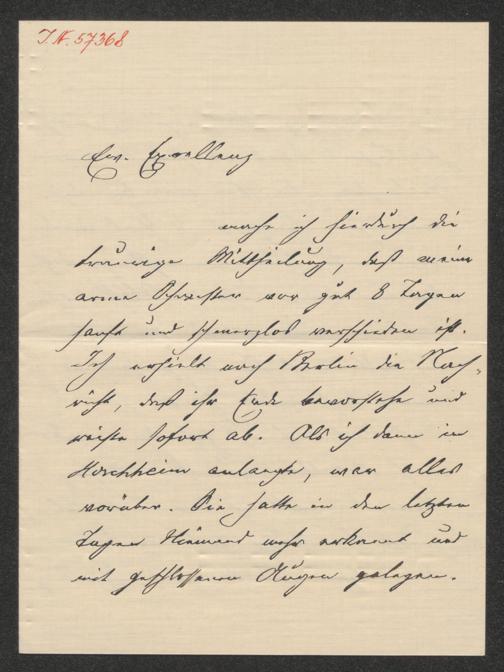 I.N. 57368
Ew. Exzellenz
mache ich hierdurch die
traurige Mittheilung, daß meine
arme Schwester vor gut 8 Tagen
sanft und schmerzlos verschieden ist.
Ich erhielt nach Berlin die Nach-
richt, daß ihr Ende bevorstehe und
reiste sofort ab. Als ich dann in
anlangte, war alles
vorüber. Sie hatte in den letzten
Tagen Niemand mehr erkannt und
mit geschlossenen Augen gelegen.